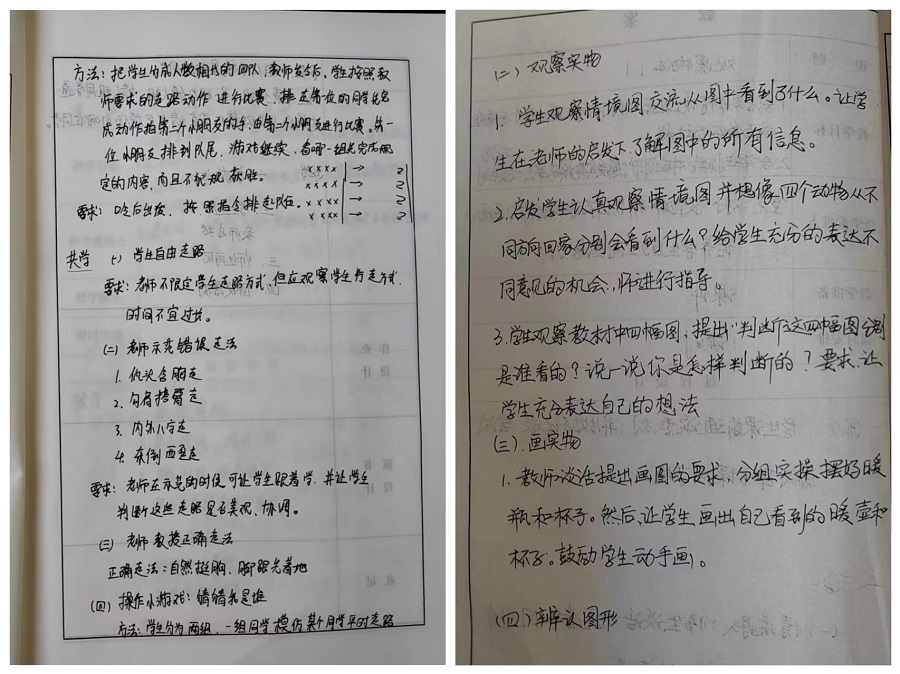 方法：把学生分成人数相当的四队，教师发令后，学生按照教
师要求的走路动作进行比赛，排在第一位的同学完
成动作拍第二个小朋友的手，由第二个小朋友进行比赛。第一
位小朋友排到队尾，游戏继续，看哪一组先完成规
定的内容，而且不犯规获胜。
要求：口令后出发，按照指令排走队伍。
xxxx → 2
xxxx → 2
xxxx → 2
xxxx → 2
共学 (一) 学生自由走路
要求：老师不限定学生走路方式，但应观察学生行走方式，
时间不宜过长。
(二) 老师示范错误走法
1. 低头含胸走
2. 勾肩搭臂走
3. 内外八字走
4. 东倒西歪走
要求：老师在示范的时候可让学生跟着学，并让学生
判断这些走路是否美观、协调。
(三) 老师教授正确走法
正确走法：自然挺胸，脚跟先着地
(四) 操作小游戏：猜猜我是谁
方法：学生分为两组，一组同学模仿某个同学平时走路
(二) 观察实物
1. 学生观察情境图，交流从图中看到了什么。让学
生在老师的启发下了解图中的所有信息。
2. 启发学生认真观察情境图并想像四个动物从不
同方向回家分别会看到什么？给学生充分的表达不
同意见的机会，师进行指导。
3. 学生观察教材中四幅图，提出"判断这四幅图分别
是谁看的？说一说你是怎样判断的？要求让
学生充分表达自己的想法
(三). 画实物
1. 教师谈话提出画图的要求，分组实操摆好暖
瓶和杯子。然后，让学生画出自己看到的暖壶和
杯子。鼓励学生动手画。
(四) 辨认图形